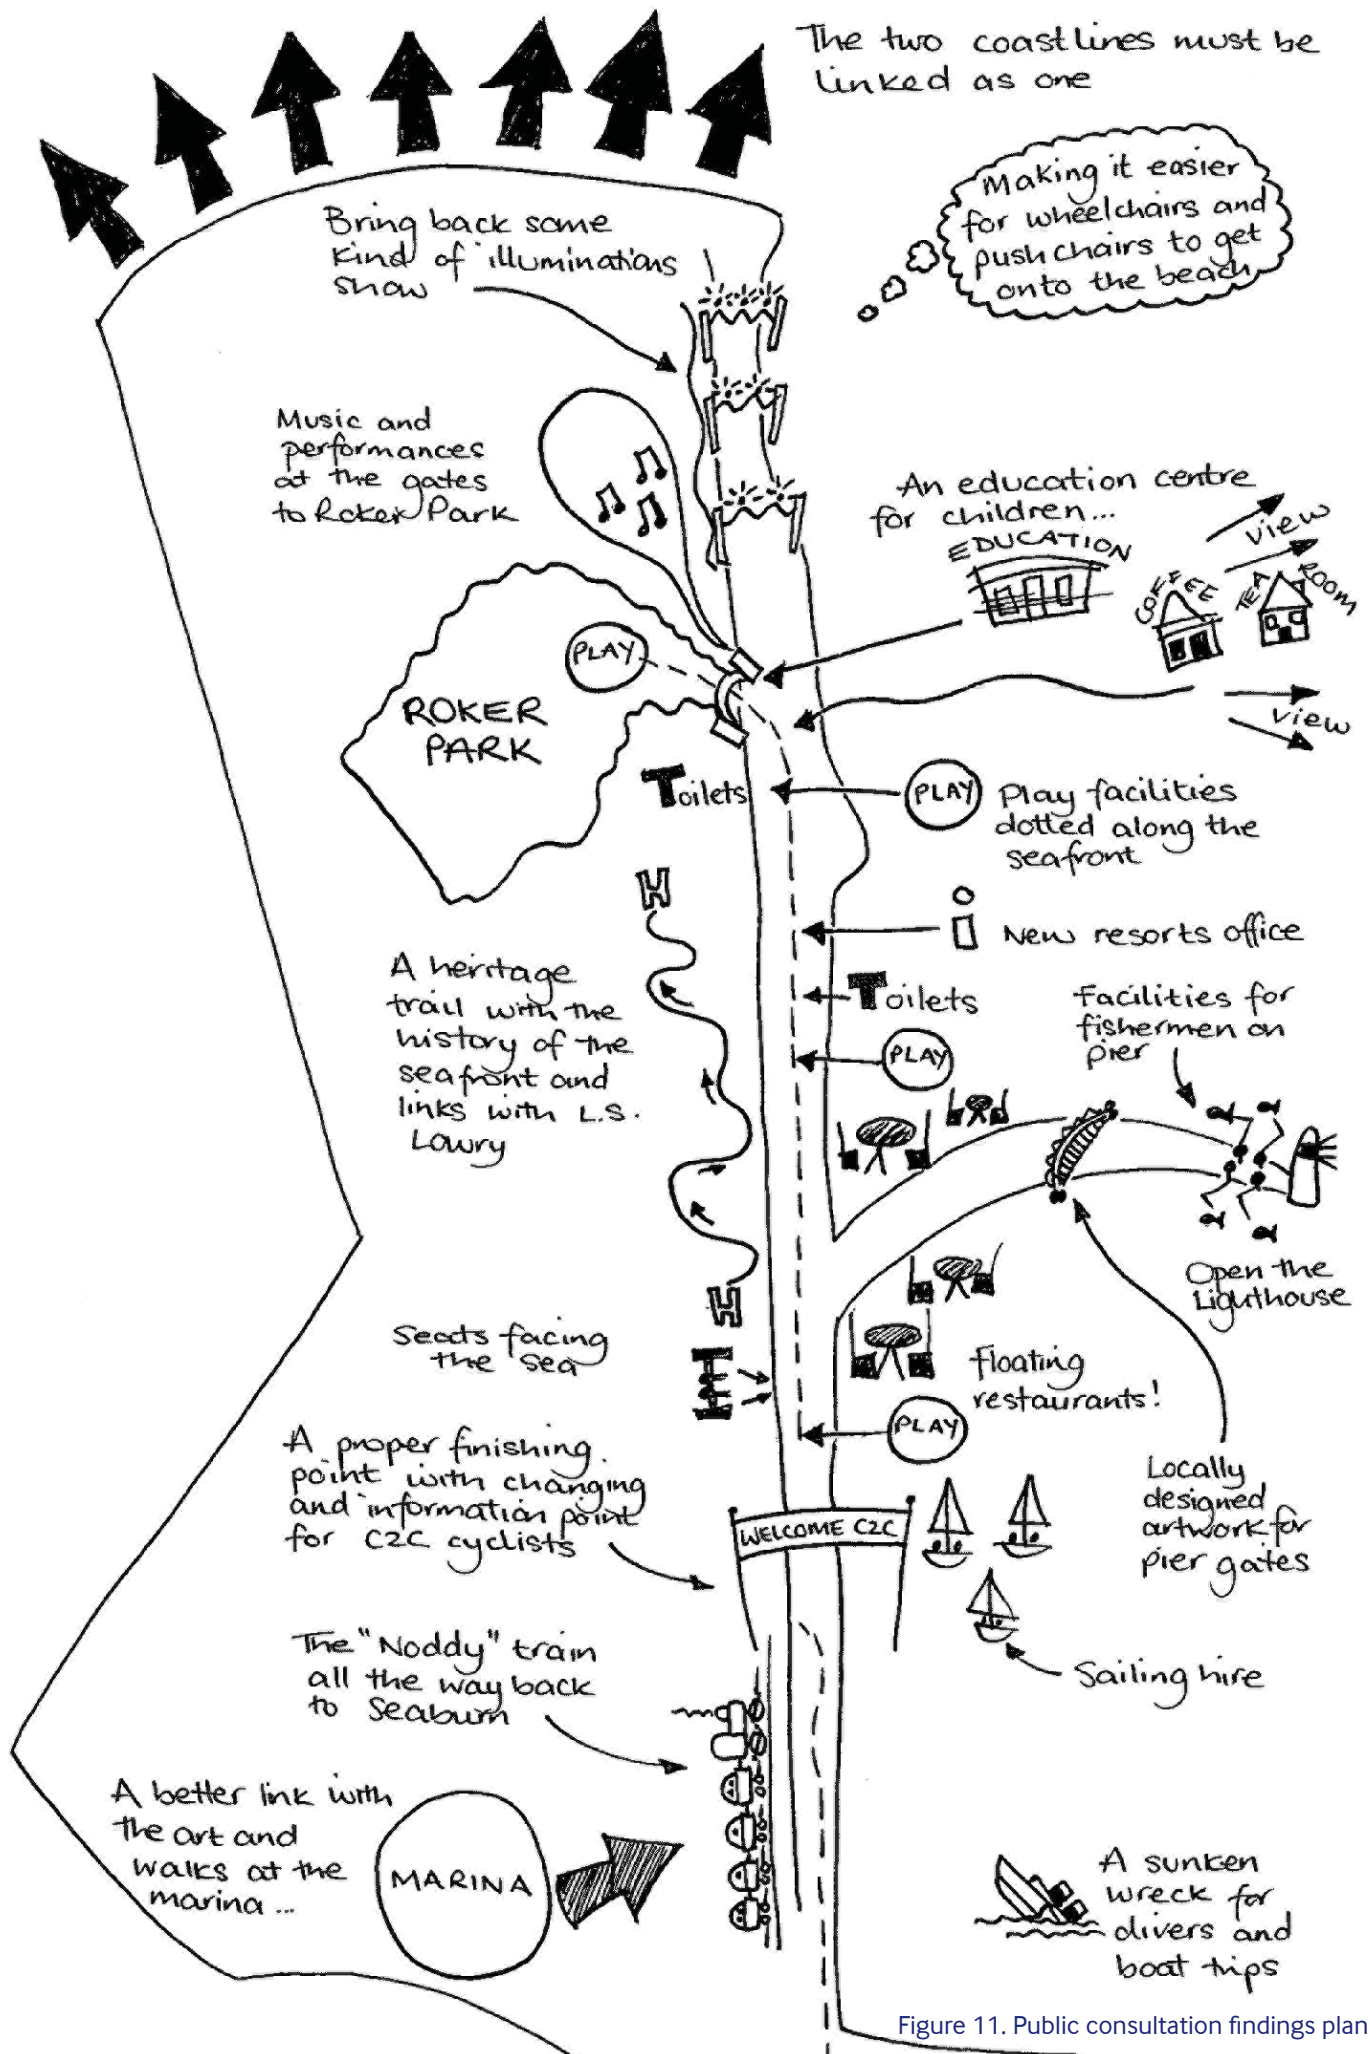 The two coastlines must be
linked as one
Making it easier
for wheelchairs and
pushchairs to get
onto the beach
Bring back some
kind of illuminations
show
Music and
performances
at the gates
to Roker Park
An education centre
for children...
EDUCATION
view
COFFEE
TEA ROOM
view
PLAY
ROKER
PARK
Toilets
PLAY
Play facilities
dotted along the
seafront
H
i
New resorts office
A heritage
trail with the
history of the
seafront and
links with L.S.
Lowry
Toilets
PLAY
Facilities for
fishermen on
pier
Open the
Lighthouse
H
Seats facing
the sea
Floating
restaurants!
PLAY
A proper finishing
point with changing
and information point
for C2C cyclists
WELCOME C2C
Locally
designed
artwork for
pier gates
The "Noddy" train
all the way back
to Seaburn
Sailing hire
A better link with
the art and
walks at the
marina ...
MARINA
A sunken
wreck for
divers and
boat trips
Figure 11. Public consultation findings plan